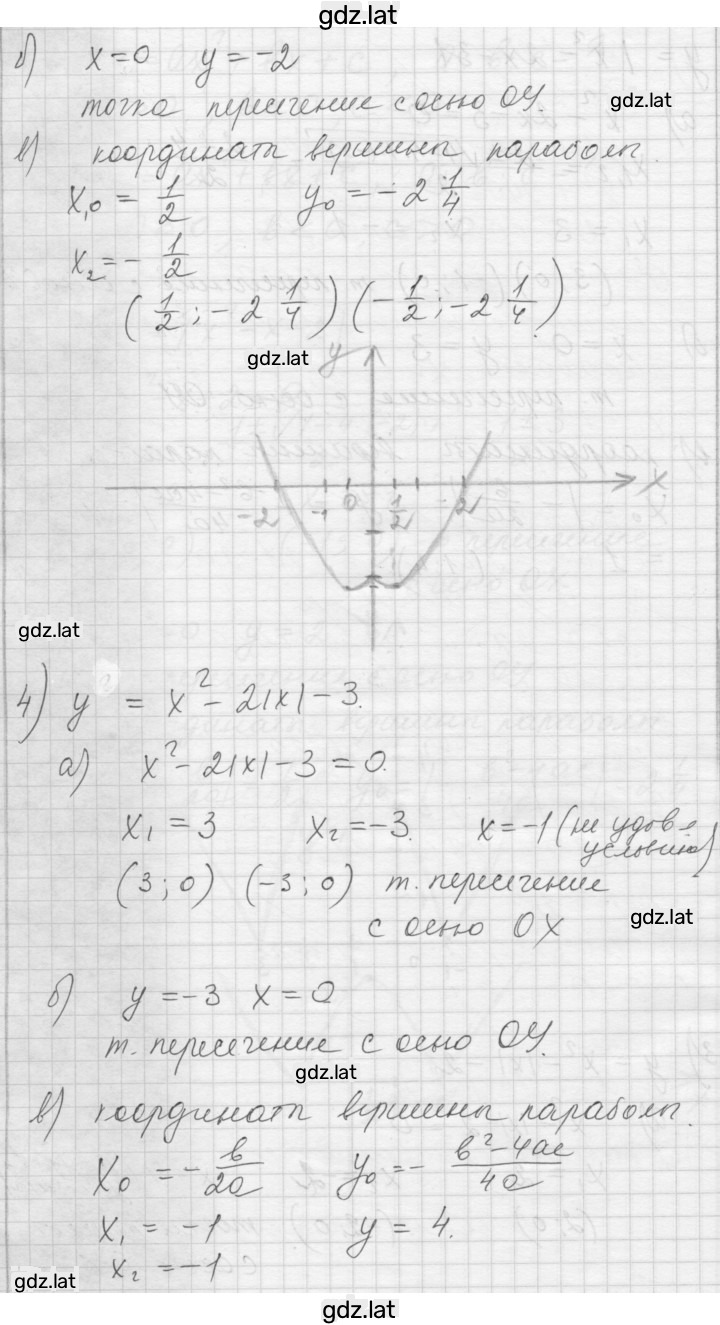 gdz.lat
б) x=0 y=-2
точка пересечение с осью ОУ. gdz.lat
в) координаты вершины параболы.
x₁,₀ = 1/2 y₀ = -2 1/4
x₂ = - 1/2
(1/2; -2 1/4) (-1/2; -2 1/4)
gdz.lat y
x
-2 -1 0 1/2 2
gdz.lat
4) y = x² - 2|x| - 3.
а) x² - 2|x| - 3 = 0.
x₁ = 3 x₂ = -3. x = -1 (не удов-е условию)
(3; 0) (-3; 0) т. пересечение
с осью ОХ gdz.lat
б) y = -3 x = 0
т. пересечение с осью ОУ.
gdz.lat
в) координаты вершины параболы.
x₀ = - в/2a y₀ = - в²-4ac/4a
x₁ = -1 y = 4.
x₂ = -1
gdz.lat
gdz.lat